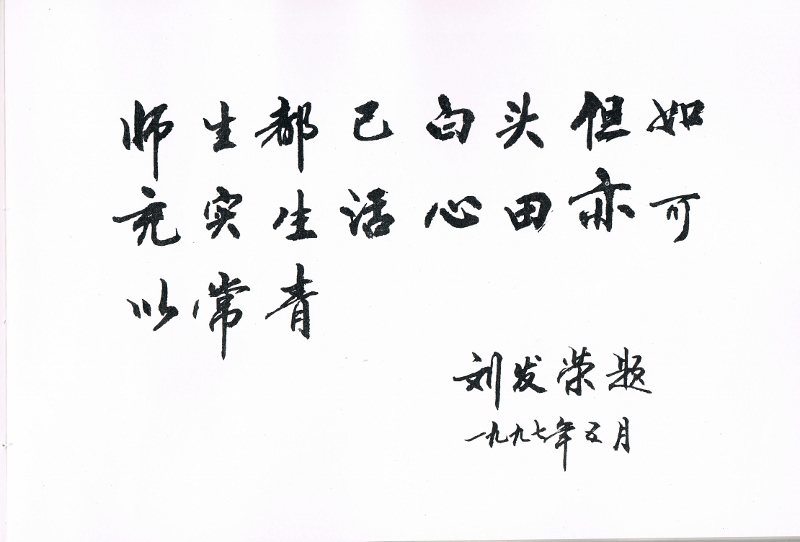 师生都已白头但如
充实生活心田亦可
以常青
刘发荣题
一九九七年五月